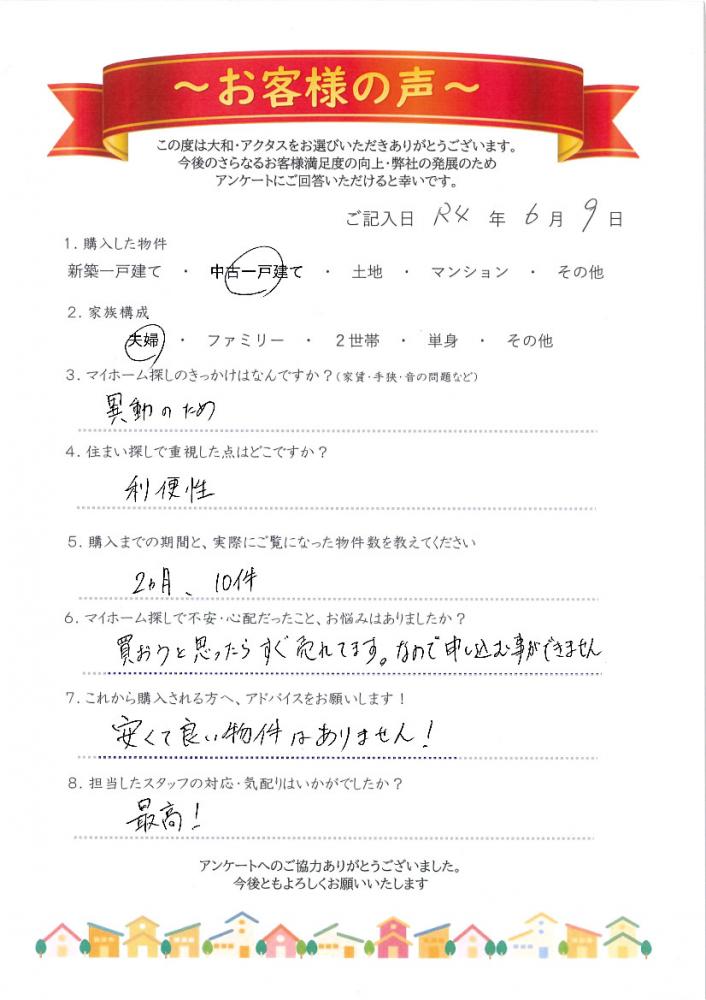 ～お客様の声～
この度は大和・アクタスをお選びいただきありがとうございます。
今後のさらなるお客様満足度の向上・弊社の発展のため
アンケートにご回答いただけると幸いです。
ご記入日 R4 年 6 月 9 日
1. 購入した物件
新築一戸建て ・ 中古一戸建て ・ 土地 ・ マンション ・ その他
2. 家族構成
夫婦 ・ ファミリー ・ 2世帯 ・ 単身 ・ その他
3. マイホーム探しのきっかけはなんですか？（家賃・手狭・音の問題など）
異動のため
4. 住まい探しで重視した点はどこですか？
利便性
5. 購入までの期間と、実際にご覧になった物件数を教えてください
2ヵ月、10件
6. マイホーム探しで不安・心配だったこと、お悩みはありましたか？
買おうと思ったらすぐ売れてます。なので申し込む事ができません
7. これから購入される方へ、アドバイスをお願いします！
安くて良い物件はありません！
8. 担当したスタッフの対応・気配りはいかがでしたか？
最高！
アンケートへのご協力ありがとうございました。
今後ともよろしくお願いいたします